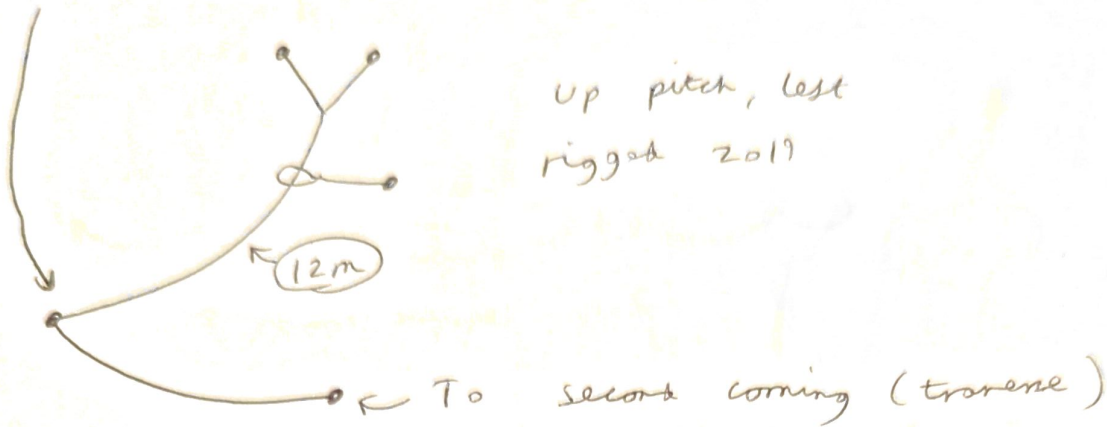 up pitch, left
rigged 2019
12m
To second coming (traverse)